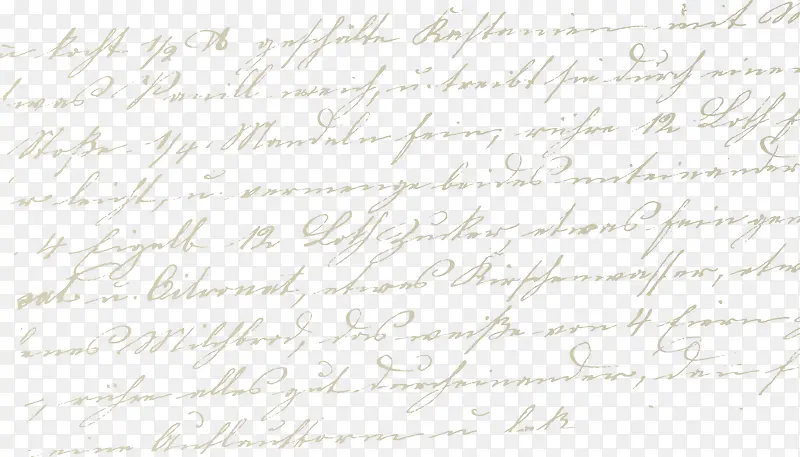 kocht 1/2 ℔ geschälte Kastanien mit
was Vanill weich, u. treibt sie durch eine
Stoße 1/4 Mandeln fein, rühre 12 Loth
leicht, u. vermenge beides miteinander
4 Eigelb 12 Loth Zucker, etwas fein
u. Citronat, etwas Kirschenwasser, etw
enes Milchbrod, das weiße von 4 Eiern
, rühre alles gut durcheinander,
eine Auflaufform u